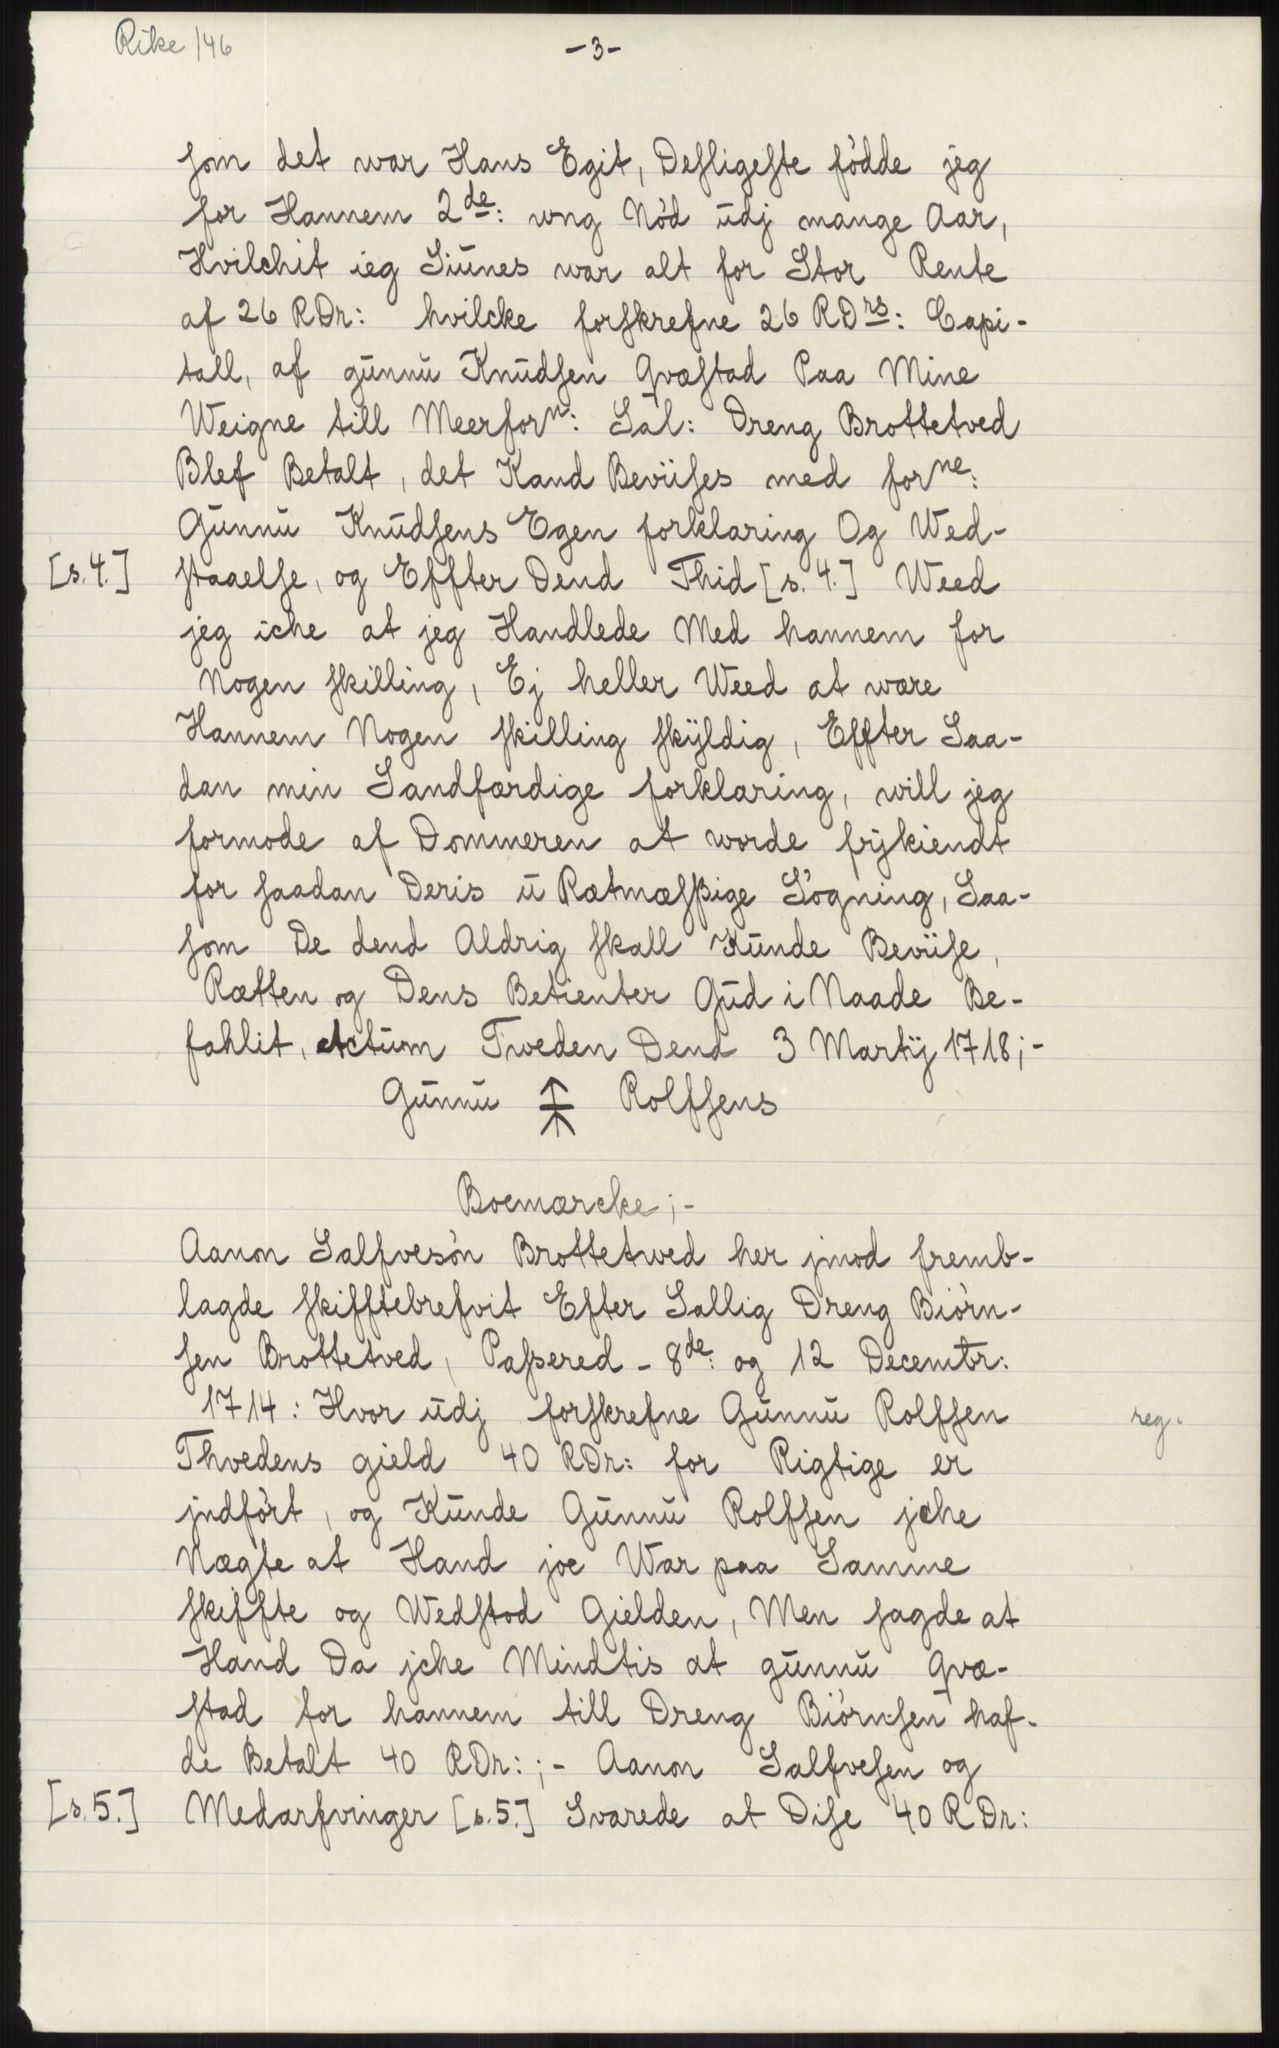 Rike 146
-3-
som det war Hans Egit, Desligeste fødde jeg
for Hannem 2de: ung Nød udj mange Aar,
Hvilchit ieg Siunes war alt for Stor Rente
af 26 RDr: hvilcke forskrefne 26 RDrs: Capi-
tall, af gunnu Knudsen Qvæstad Paa Mine
Weigne till Meerforn: Sal: Dreng Brottetved
Blef Betalt, det Kand Beviises med forne:
Gunnu Knudsens Egen forklaring Og Wed-
[s.4.] staaelse, og Effter Dend Thid [s. 4.] Weed
jeg iche at jeg Handlede Med hannem for
Nogen skilling, Ej heller Weed at wære
Hannem Nogen skilling skÿldig, Effter Saa-
dan min Sandfærdige forklaring, will jeg
formode af Dommeren at worde frjkiendt
for saadan Deris u Rætmæssige Søgning, Saa-
som De dend Aldrig skall Kunde Beviise,
Rætten og Dens Betienter Gud i Naade Be-
fahlit, Actum Tweden Dend 3 Martij 1718;-
Gunnu Rolfsens
Boemærcke;-
Aanon Salfvesøn Brottetwed her jmod fremb-
lagde skifftebrefvit Efter Sallig Dreng Biørn-
sen Brottetved, Passered - 8de: og 12 Decembr:
1714: Hvor udj forskrefne Gunnu Rolfsen reg.
Thvedens gield 40 RDr: for Rigtige er
jndført, og Kunde Gunnu Rolfsen jche
Nægte at Hand joe War paa Samme
skiffte og Wedstod Gielden, Men sagde at
Hand Da jche Mindtis at gunnu Qvæ-
stad for hannem till Dreng Biørnsen haf-
de Betalt 40 RDr:;- Aanon Salfvesen og
[s.5.] Medarfvinger [s.5.] Svarede at Dise 40 RDr: